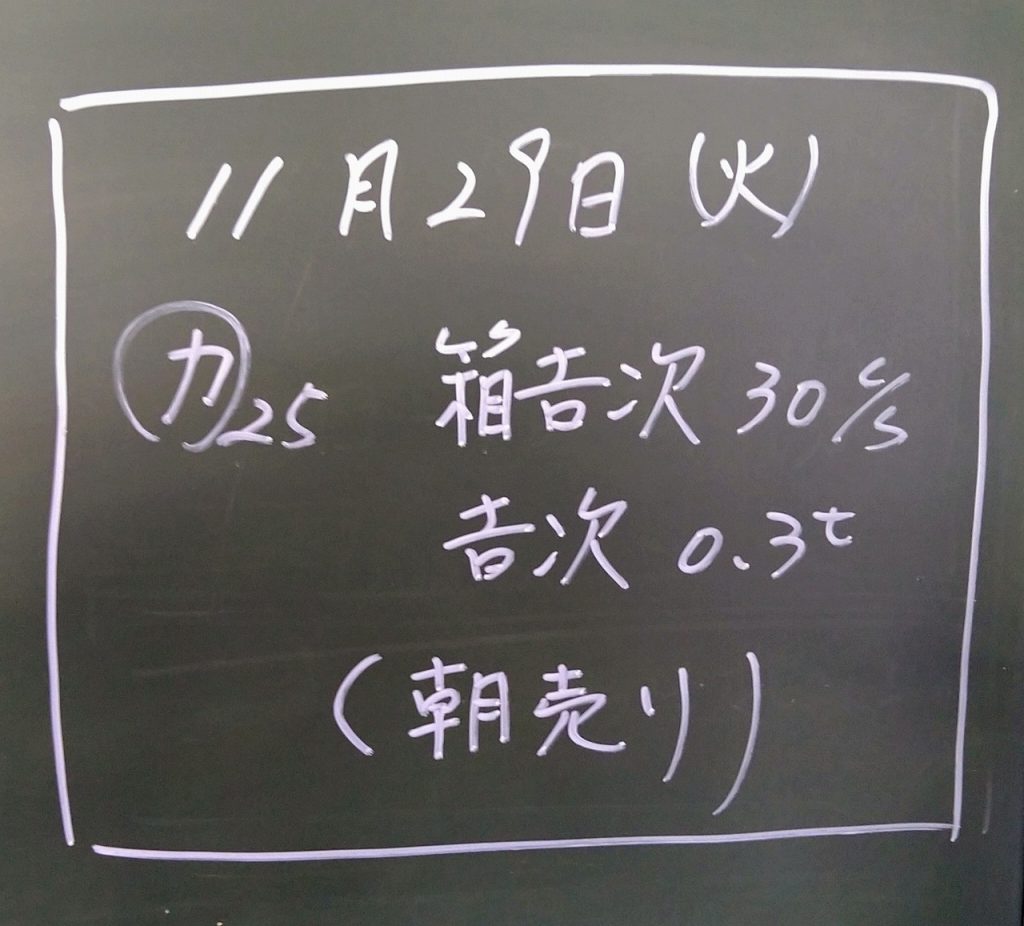 11月29日(火)
㋕25 箱吉次 30c/s
吉次 0.3t
(朝売り)